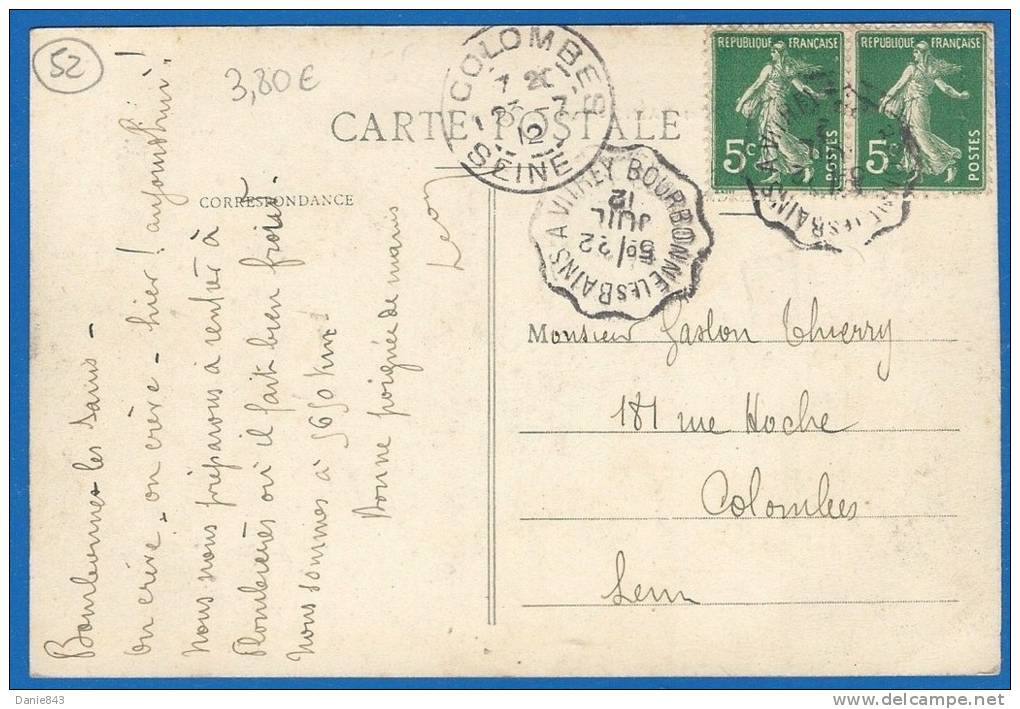 52
3,80€
CARTE POSTALE
COLOMBES
7 20
23 -7
12
SEINE
RÉPUBLIQUE FRANÇAISE
5c
POSTES
RÉPUBLIQUE FRANÇAISE
5c
POSTES
CORRESPONDANCE
BOURBONNE LES BAINS A VITREY
50/22
JUIL
12
Bourbonne les Bains -
on crève - on crève - hier ! aujourd'hui !
nous nous préparons à rentrer à
Plombières où il fait bien froid
nous sommes à 5650 Km !
Bonne poignée de mains
Léon
Monsieur Gaston Thierry
181 rue Hoche
Colombes
Seine
Danie843
delcampe.net